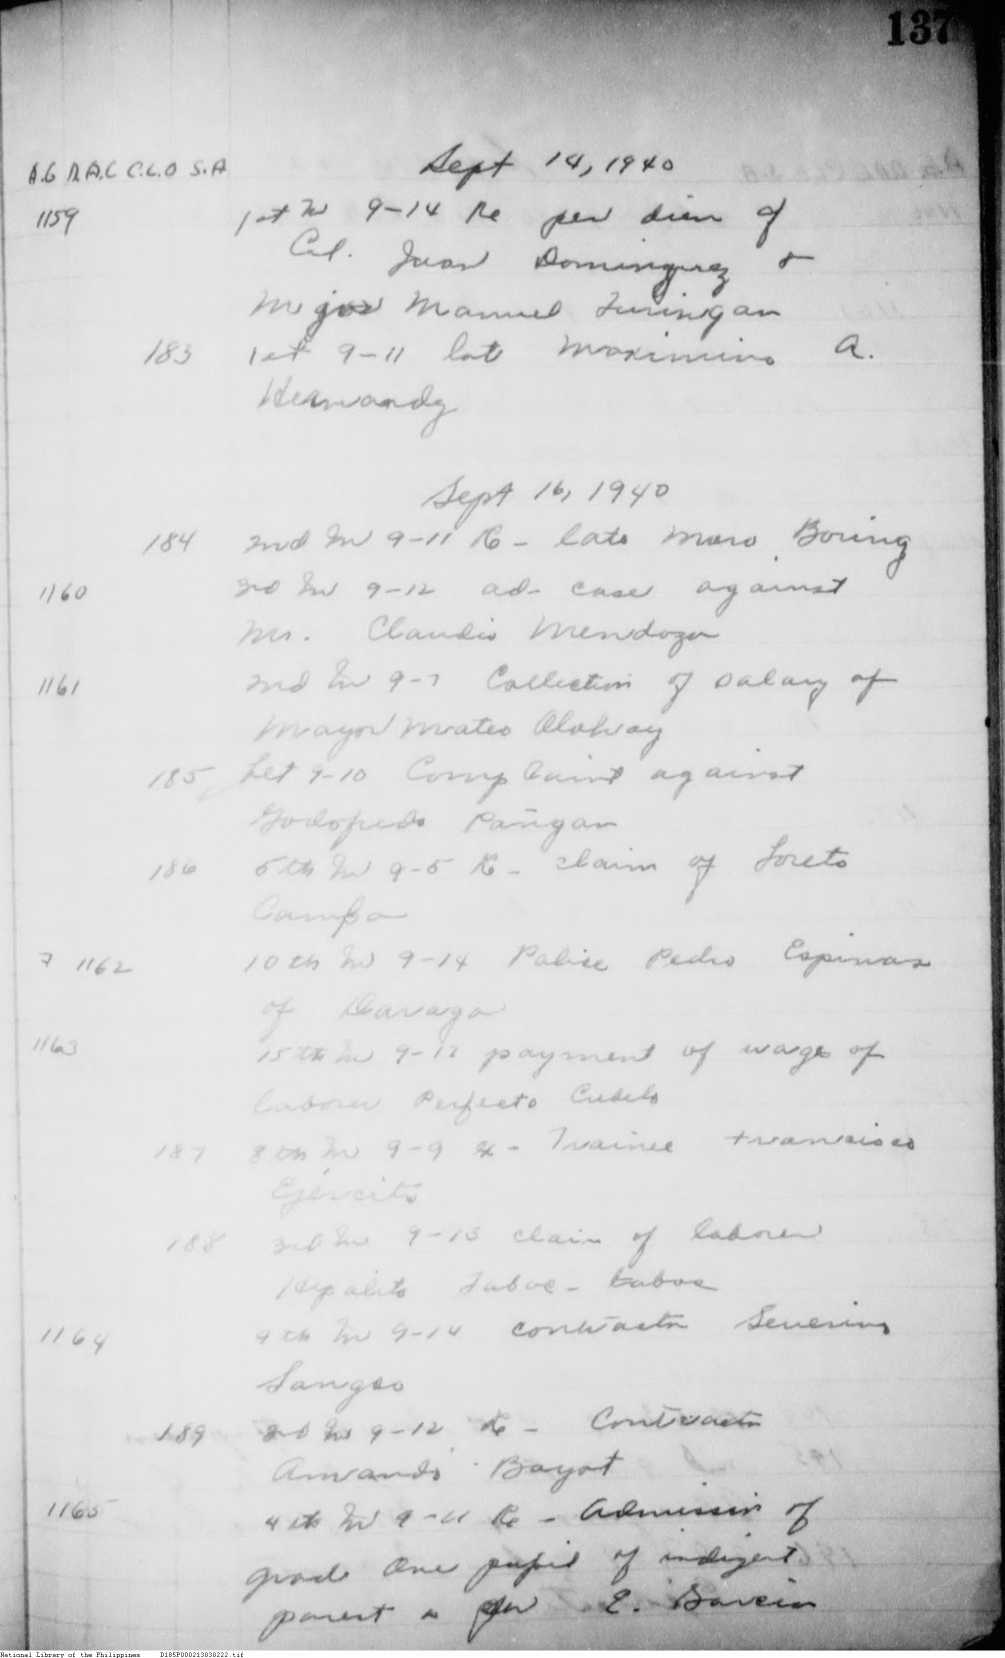 137
A.G D.A.C C.L.O S.A
Sept 14, 1940
1159 1st In 9-14 Re per diem of
Col. Juan Dominguez &
Major Manuel Turingan
183 1st 9-11 late Maximino A.
Hernandz
Sept 16, 1940
184 2nd In 9-11 Re - late Moro Boring
1160 3rd In 9-12 ad- case against
Mr. Claudio Mendoza
1161 2nd In 9-7 Collection of salary of
Mayor Mateo
185 Let 9-10 Complaint against
Godofredo Pañgan
186 5th In 9-5 Re - claim of Loreto
Campo
7 1162 10th In 9-14 Police Pedro Espinas
of Daraga
1163 15th In 9-12 payment of wages of
laborer Perfecto
187 8th In 9-9 Re - Trainee Francisco
Ejercito
188 3rd In 9-13 claim of laborer
Hipolito Taboc-taboc
1164 9th In 9-14 contractor Severino
189 3rd In 9-12 Re - Contractor
Amando Bayot
1165 4th In 9-11 Re - Admission of
grade One pupil of indigent
parent E. Garcia
National Library of the Philippines D185P000213838222.tif